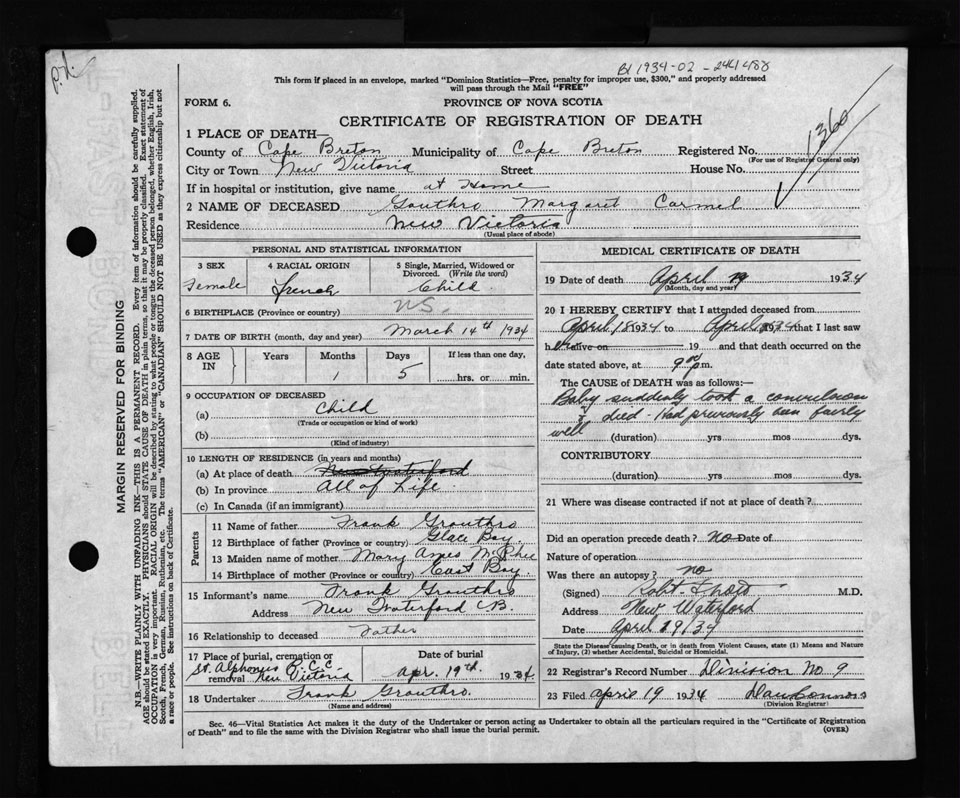 p.d.
B1 1934-02-241488
This form if placed in an envelope, marked "Dominion Statistics—Free, penalty for improper use, $300," and properly addressed
will pass through the Mail "FREE"
FORM 6.
PROVINCE OF NOVA SCOTIA
1360
CERTIFICATE OF REGISTRATION OF DEATH
1 PLACE OF DEATH—
County of Cape Breton Municipality of Cape Breton Registered No.
(For use of Registrar General only)
City or Town New Victoria Street House No.
If in hospital or institution, give name at Home
2 NAME OF DECEASED Gouthro Margaret Carmel
Residence New Victoria
(Usual place of abode)
PERSONAL AND STATISTICAL INFORMATION
3 SEX 4 RACIAL ORIGIN 5 Single, Married, Widowed or
Divorced. (Write the word)
Female French Child
6 BIRTHPLACE (Province or country) N.S.
7 DATE OF BIRTH (month, day and year) March 14th 1934
8 AGE IN Years Months Days If less than one day,
1 5 hrs. or min.
9 OCCUPATION OF DECEASED
(a) Child
(Trade or occupation or kind of work)
(b)
(Kind of industry)
10 LENGTH OF RESIDENCE (in years and months)
(a) At place of death New Waterford
(b) In province All of Life
(c) In Canada (if an immigrant)
Parents
11 Name of father Frank Grouthro
12 Birthplace of father (Province or country) Glace Bay
13 Maiden name of mother Mary Agnes McPhee
14 Birthplace of mother (Province or country) East Bay
15 Informant's name Frank Grouthro
Address New Waterford CB.
16 Relationship to deceased Father
17 Place of burial, cremation or removal Date of burial
St. Alphonsus R.C.C. New Victoria Apr. 19th. 1934.
18 Undertaker Frank Grouthro.
(Name and address)
MEDICAL CERTIFICATE OF DEATH
19 Date of death April 19 1934
(Month, day and year)
20 I HEREBY CERTIFY that I attended deceased from
April 18 1934 to April 1934 that I last saw
h alive on 19 and that death occurred on the
date stated above, at 9 00 p.m.
The CAUSE OF DEATH was as follows:—
Baby suddenly took a convulsion
& died - Had previously been fairly
well (duration) yrs mos dys.
CONTRIBUTORY
(duration) yrs mos dys.
21 Where was disease contracted if not at place of death?
Did an operation precede death? no Date of
Nature of operation
Was there an autopsy? no
(Signed) Robt M.D.
Address New Waterford
Date April 19/34
State the Disease causing Death, or in death from Violent Causes, state (1) Means and Nature
of Injury, (2) whether Accidental, Suicidal or Homicidal.
22 Registrar's Record Number Division No. 9
23 Filed April 19 1934
(Division Registrar)
Sec. 46—Vital Statistics Act makes it the duty of the Undertaker or person acting as Undertaker to obtain all the particulars required in the "Certificate of Registration
of Death" and to file the same with the Division Registrar who shall issue the burial permit. (OVER)
MARGIN RESERVED FOR BINDING
N.B.—WRITE PLAINLY WITH UNFADING INK—THIS IS A PERMANENT RECORD. Every item of information should be carefully supplied.
AGE should be stated EXACTLY. PHYSICIANS should STATE CAUSE OF DEATH in plain terms, so that it may be properly classified. Exact statement of
OCCUPATION is very important. RACIAL ORIGIN will be described by stating to what people or tongue the deceased person belonged, whether English, Irish,
Scotch, French, German, Russian, Ruthenian, etc. The terms "AMERICAN" or "CANADIAN" SHOULD NOT BE USED as they express citizenship but not
a race or people. See instructions on back of Certificate.